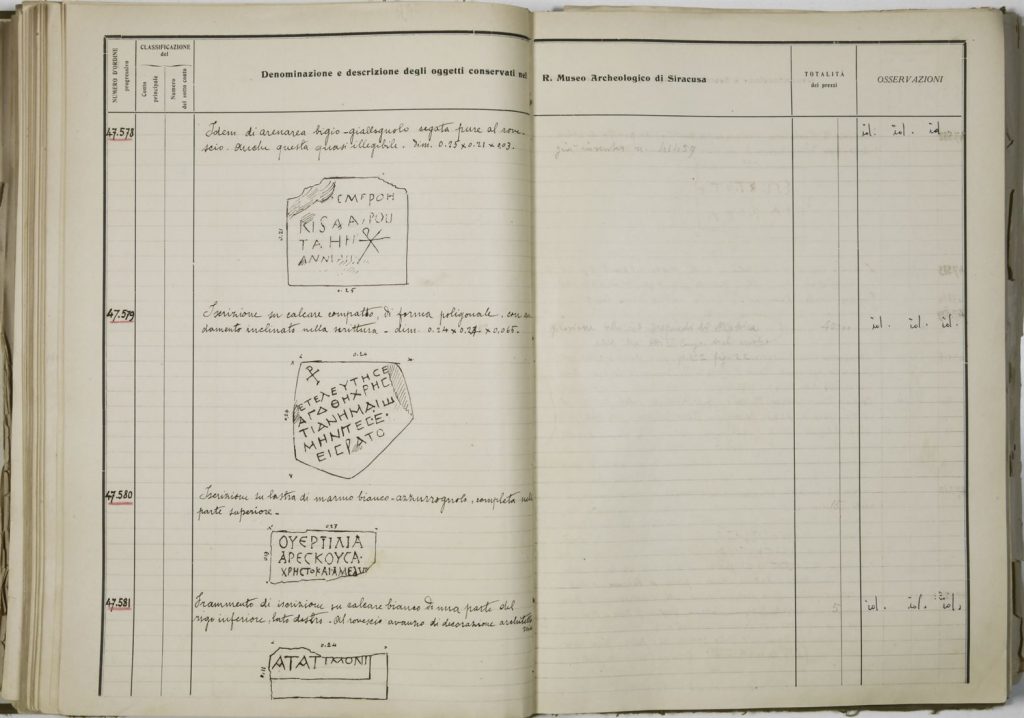 NUMERO D'ORDINE progressivo
CLASSIFICAZIONE del
Conto principale
Numero del sotto conto
Denominazione e descrizione degli oggetti conservati nel R. Museo Archeologico di Siracusa
TOTALITÀ dei prezzi
OSSERVAZIONI
47.578
Idem di arenarea bigio-giallognolo segata pure al rove-
scio. Anche questa quasi illegibile. dim. 0.25 x 0.21 x 0.03.
già inventr. n. 41459
id. id. id
ΕΜΕΡΟΗ
ΤΑΗΗ
0.21
0.25
47.579
Iscrizione su calcare compatto, di forma poligonale, con an
damento inclinato nella scrittura - dim. 0.24 x 0.27 x 0.065.
id. id. id.
0.24
ΕΤΕΛΕΥΤΗCΕ
ΑΓΑΘΗΧΡΗC
ΤΙΑΝΗΜΑΙΩ
ΕΙCΡΑΤΟ
47.580
Iscrizione su lastra di marmo bianco-azzurrognolo, completa nella
parte superiore -
0.27
ΟΥΕΡΤΙΛΙΑ
ΑΡΕCΚΟΥCΑ·
47.581
Frammento di iscrizione su calcare bianco di una parte del
rigo inferiore, lato destro - Al rovescio avanzo di decorazione
id. id. id.
0.24
0.11
ΑΤΑΤΙΜΟΝΙ